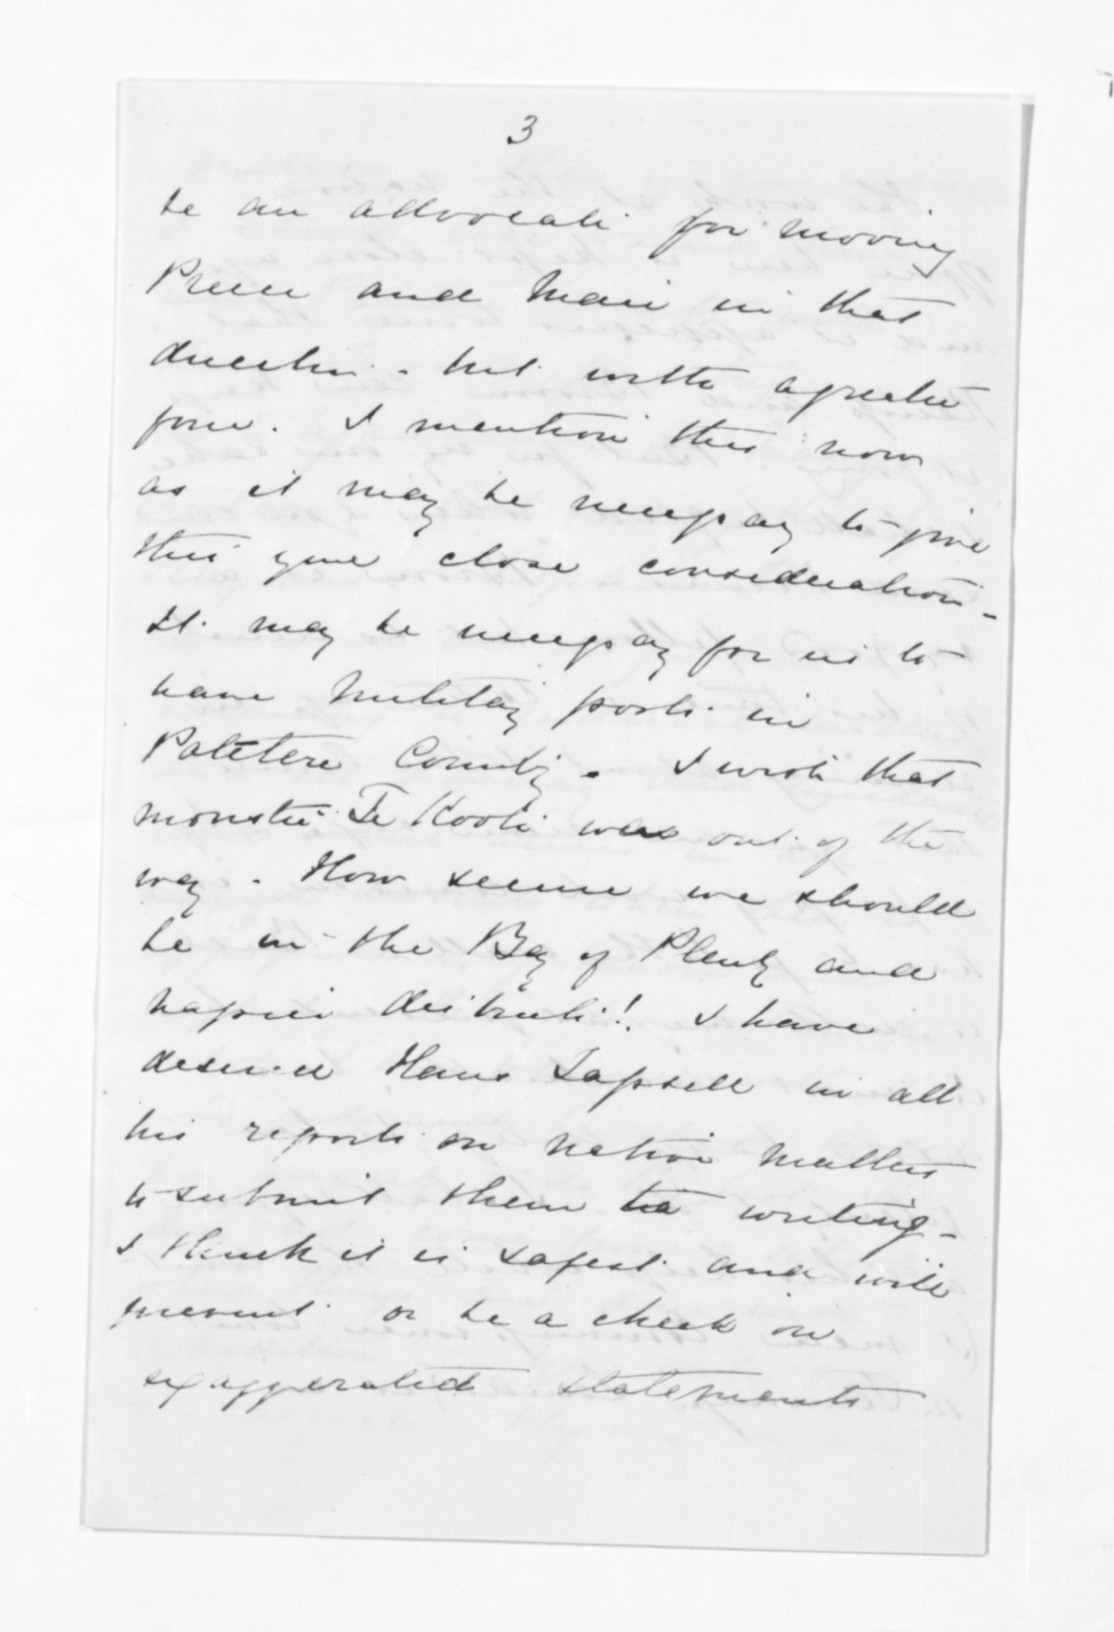 3
be an advocate for moving
Preece and Mair in that
direction - but with a greater
force. I mention this now
as it may be necessary to give
this your close consideration -
It may be necessary for us to
have Military posts in
Patetere Country. I wish that
monster Te Kooti was out of the
way. How secure we should
be in the Bay of Plenty and
Napier districts! I have
desired Hans Tapsell in all
his reports on native matters
to submit them to writing -
I think it is safest and will
prevent or be a check on
exaggerated statements